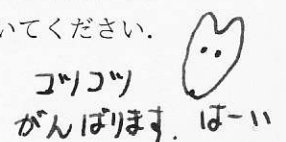 いてください.
コツコツ
がんばります. はーい